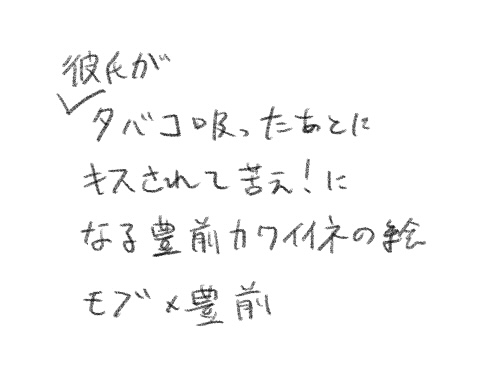 彼氏が
タバコ吸ったあとに
キスされて苦え!に
なる豊前カワイイネの絵
モブ×豊前